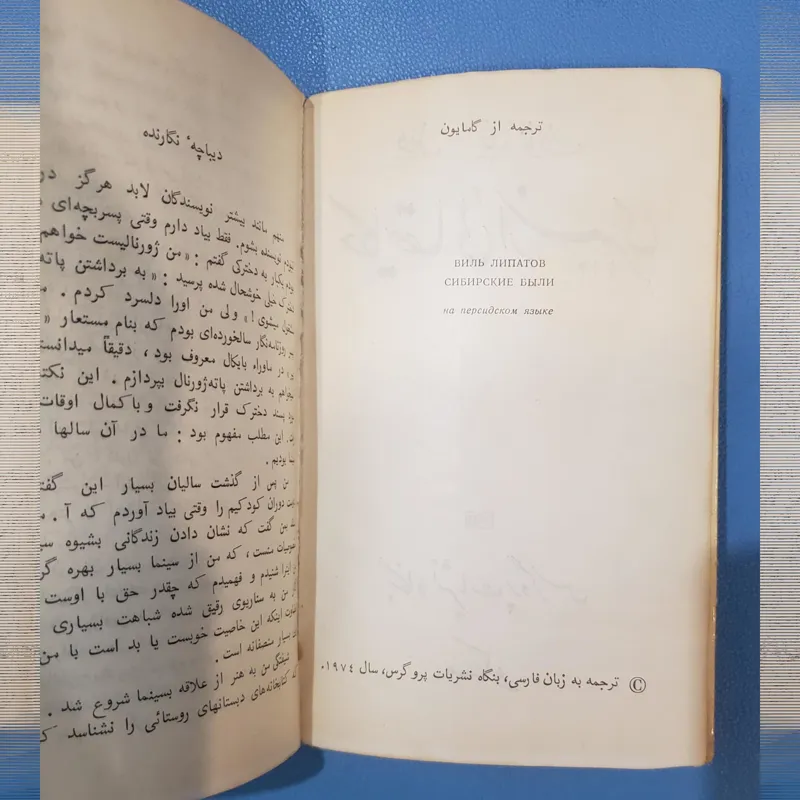 ترجمه از گامایون
ВИЛЬ ЛИПАТОВ
СИБИРСКИЕ БЫЛИ
на персидском языке
© ترجمه به زبان فارسی، بنگاه نشریات پروگرس، سال ۱۹۷٤.
دیباچهٔ نگارنده
منهم مانند بیشتر نویسندگان لابد هرگز در
نویسنده بشوم. فقط بیاد دارم وقتی پسربچه‌ای
یکبار به دخترکی گفتم: «من ژورنالیست خواهم
خیلی خوشحال شده پرسید: «به برداشتن پاته
میشوی!» ولی من اورا دلسرد کردم.
روزنامه‌نگار سالخورده‌ای بودم که بنام مستعار «
در ماوراء بایکال معروف بود، دقیقاً میدانست
به برداشتن پاته‌ژورنال بپردازم. این نکته
پسند دخترک قرار نگرفت و باکمال اوقات
این مطلب مفهوم بود: ما در آن سالها
بودیم.
من پس از گذشت سالیان بسیار این گفت
دوران کودکیم را وقتی بیاد آوردم که آ.
من گفت که نشان دادن زندگانی بشیوه
منست، که من از سینما بسیار بهره
شنیدم و فهمیدم که چقدر حق با اوست
من به سناریوی رقیق شده شباهت بسیاری
اینکه این خاصیت خوبست یا بد است با من
بسیار منصفانه است.
شیفتگی من به هنر از علاقه بسینما شروع شد.
که کتابخانه‌های دبستانهای روستائی را نشناسد